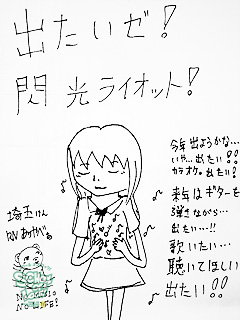 出たいゼ!
閃光ライオット!
今年出ようかな…
いや…出たい!!
カラオケ。出たい!
来年はギターを
弾きながら…
出たい…!!
歌いたい…
聴いてほしい
出たい!!
埼玉けん
NO MUSIC
NO LIFE!